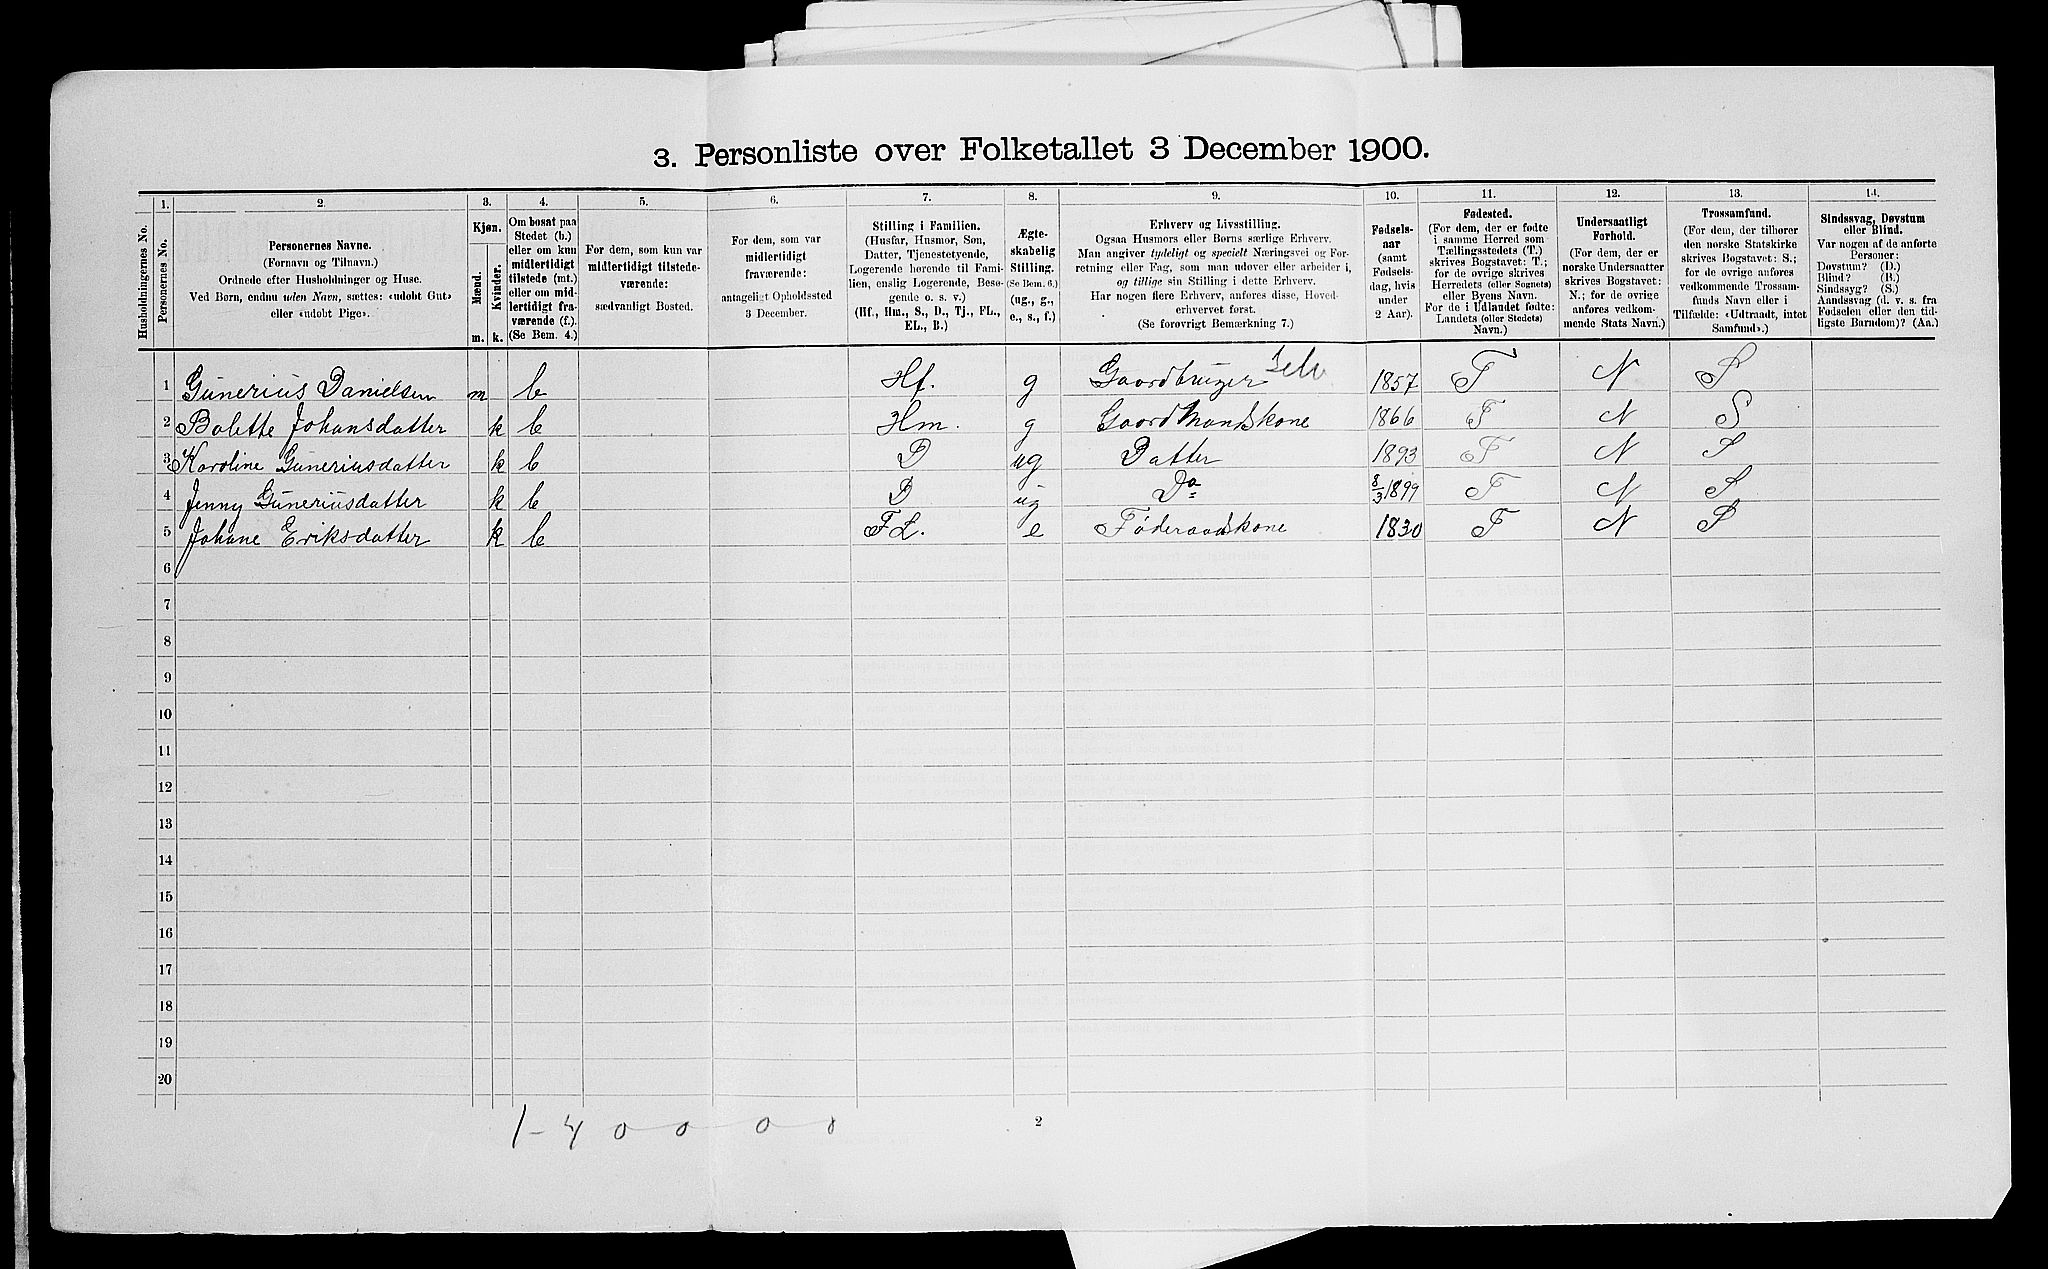 3. Personliste over Folketallet 3 December 1900.
1. 2. 3. 4. 5. 6. 7. 8. 9. 10. 11. 12. 13. 14.
Husholdningernes No.
Personernes No.
Personernes Navne.
(Fornavn og Tilnavn.)
Ordnede efter Husholdninger og Huse.
Ved Børn, endnu uden Navn, sættes: «udøbt Gut»
eller «udøbt Pige».
Kjøn.
Mænd.
Kvinder.
m. k.
Om bosat paa
Stedet (b.)
eller om kun
midlertidigt
tilstede (mt.)
eller om mid-
lertidigt fra-
værende (f.).
(Se Bem. 4.)
For dem, som kun var
midlertidigt tilstede-
værende:
sædvanligt Bosted.
For dem, som var
midlertidigt
fraværende:
antageligt Opholdssted
3 December.
Stilling i Familien.
(Husfar, Husmor, Søn,
Datter, Tjenestetyende,
Logerende hørende til Fami-
lien, enslig Logerende, Besø-
gende o. s. v.)
(Hf., Hm., S., D., Tj., FL.,
EL., B.)
Ægte-
skabelig
Stilling.
(Se Bem. 6.)
(ug., g.,
e., s., f.)
Erhverv og Livsstilling.
Ogsaa Husmors eller Børns særlige Erhverv.
Man angiver tydeligt og specielt Næringsvei og For-
retning eller Fag, som man udøver eller arbeider i,
og tillige sin Stilling i dette Erhverv.
Har nogen flere Erhverv, anføres disse, Hoved-
erhvervet først.
(Se forøvrigt Bemærkning 7.)
Fødsels-
aar
(samt
Fødsels-
dag, hvis
under
2 Aar).
Fødested.
(For dem, der er fødte
i samme Herred som
Tællingsstedets (T.)
skrives Bogstavet: T.;
for de øvrige skrives
Herredets (eller Sognets)
eller Byens Navn.
For de i Udlandet fødte:
Landets (eller Stedets)
Navn.)
Undersaatligt
Forhold.
(For dem, der er
norske Undersaatter
skrives Bogstavet:
N.; for de øvrige
anføres vedkom-
mende Stats Navn.)
Trossamfund.
(For dem, der tilhører
den norske Statskirke
skrives Bogstavet: S.;
for de øvrige anføres
vedkommende Trossam-
funds Navn eller i
Tilfælde: «Udtraadt, intet
Samfund».)
Sindssvag, Døvstum
eller Blind.
Var nogen af de anførte
Personer:
Døvstum? (D.)
Blind? (B.)
Sindssyg? (S.)
Aandssvag (d. v. s. fra
Fødselen eller den tid-
ligste Barndom)? (Aa.)
1 Gunerius Danielsen m b Hf. g Gaardbruger Selv 1857 T N S
2 Bolette Johansdatter k b Hm. g Gaardmandskone 1866 T N S
3 Karoline Guneriusdatter k b D ug Datter 1893 T N S
4 Jenny Guneriusdatter k b D ug Do 8/3 1899 T N S
5 Johane Eriksdatter k b FL. e Føderaadskone 1830 T N S
6
7
8
9
10
11
12
13
14
15
16
17
18
19
20
1 - 4 0 0 0 0
2